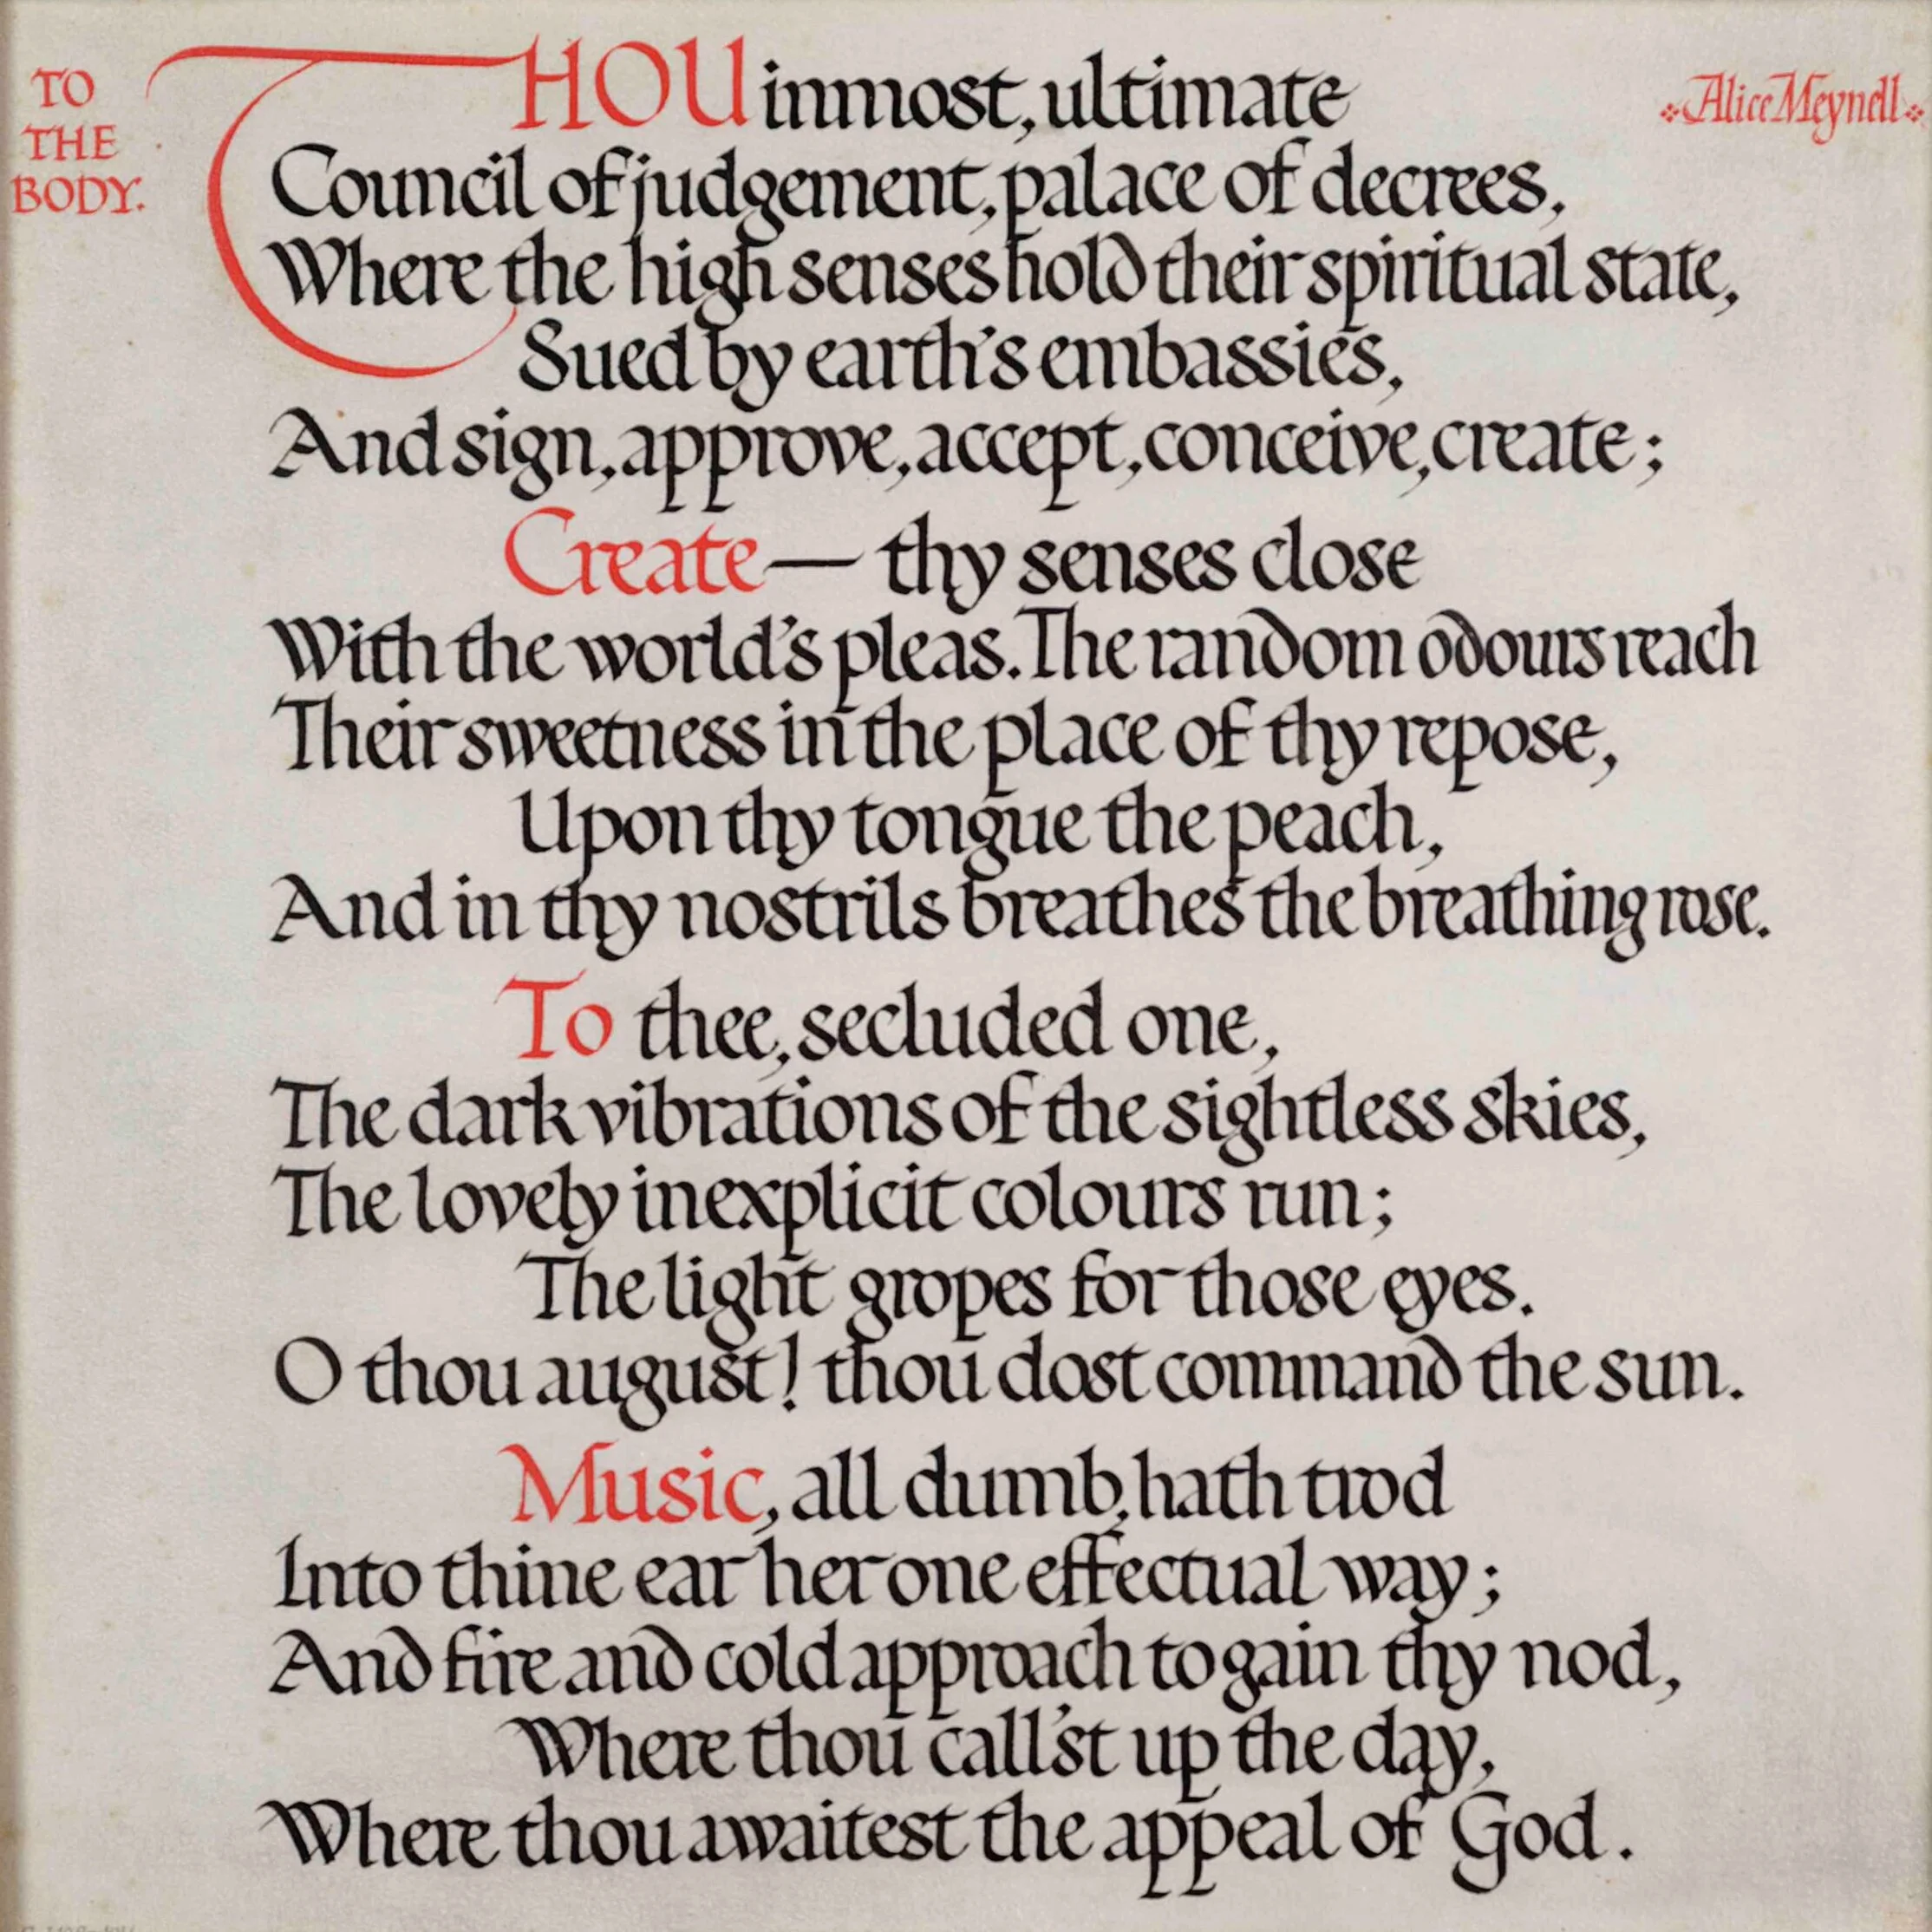 TO
THE
BODY.
Alice Meynell
THOU inmost, ultimate
Council of judgement, palace of decrees,
Where the high senses hold their spiritual state,
Sued by earth's embassies,
And sign, approve, accept, conceive, create;
Create — thy senses close
With the world's pleas. The random odours reach
Their sweetness in the place of thy repose,
Upon thy tongue the peach,
And in thy nostrils breathes the breathing rose.
To thee, secluded one,
The dark vibrations of the sightless skies,
The lovely inexplicit colours run;
The light gropes for those eyes.
O thou august! thou dost command the sun.
Music, all dumb, hath trod
Into thine ear her one effectual way;
And fire and cold approach to gain thy nod,
Where thou call'st up the day,
Where thou awaitest the appeal of God.